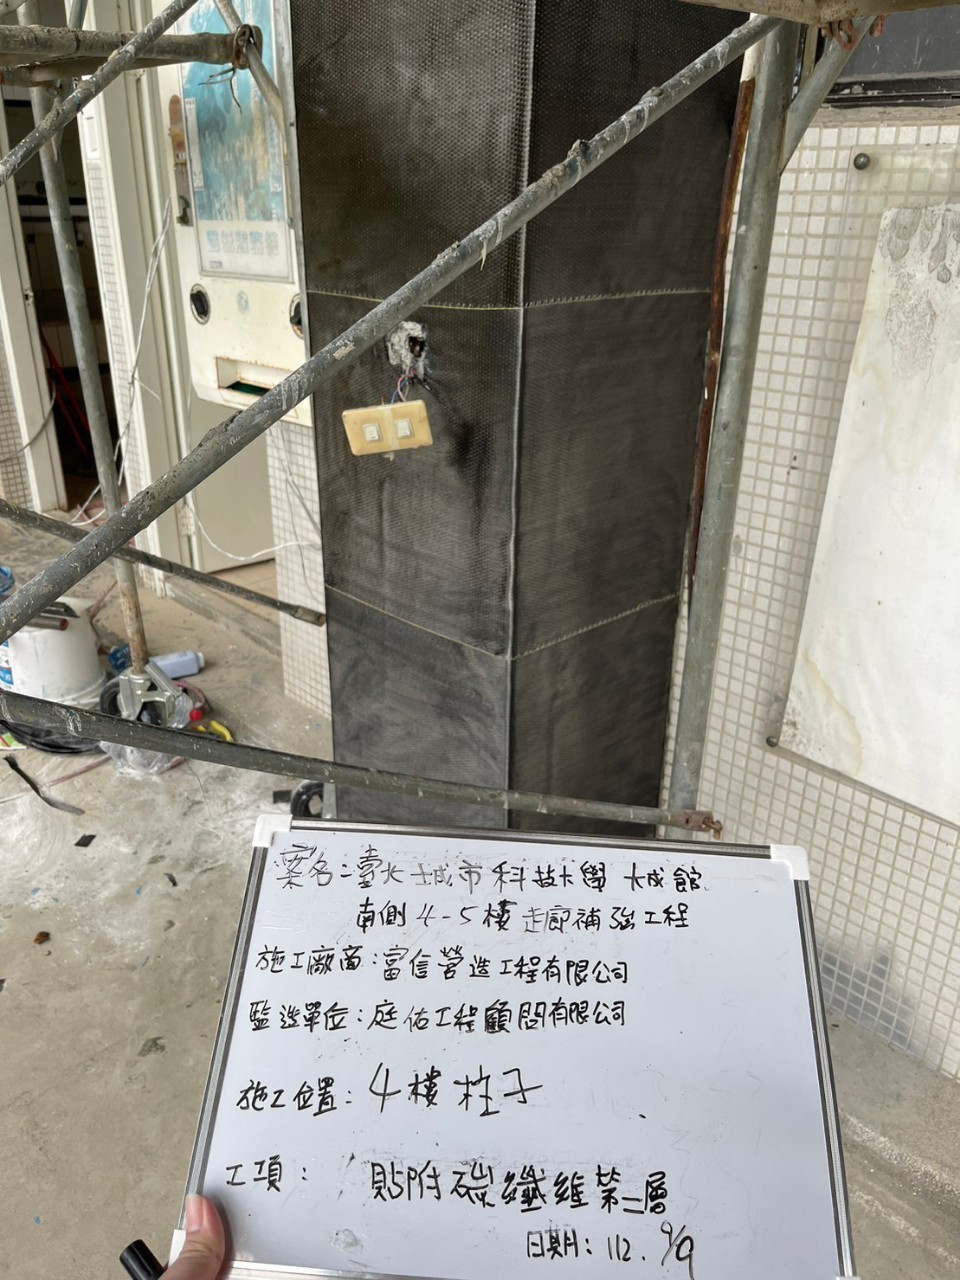 案名:臺北城市科技大學 大成館
南側4-5樓走廊補強工程
施工廠商:富信營造工程有限公司
監造單位:庭佑工程顧問有限公司
施工位置:4樓柱子
工項: 貼附碳纖維第二層
日期:112.9/9